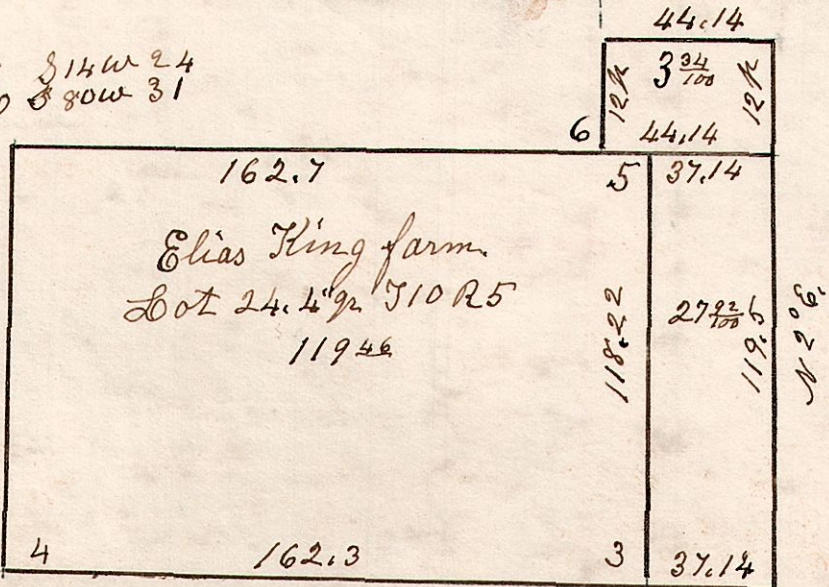 44.14
S 14 W 24
S 80 W 31
3 34/100
12 R
12 R
6
44.14
162.7
5
37.14
Elias King farm.
Lot 24. 4 qr T10 R5
119 46
118.22
27 92/100
119.5
N 2° E
4
162.3
3
37.14